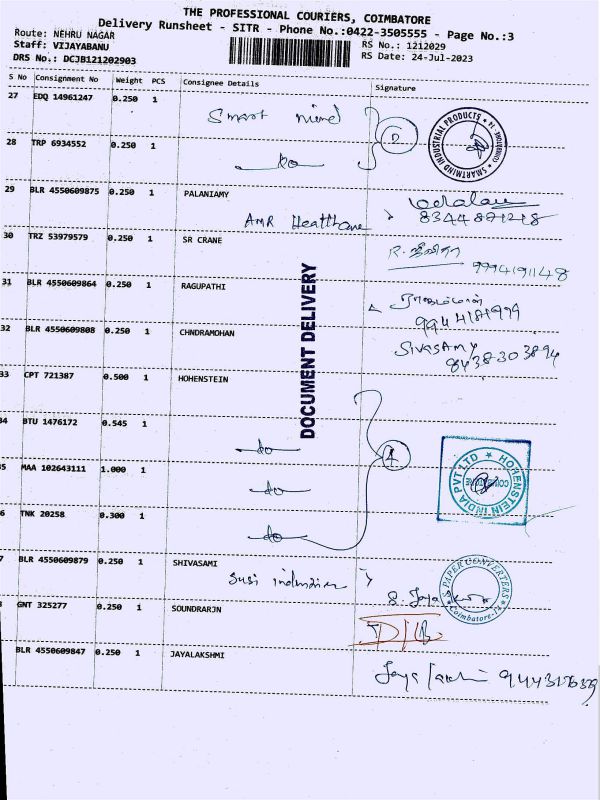 THE PROFESSIONAL COURIERS, COIMBATORE
Delivery Runsheet - SITR - Phone No.:0422-3505555 - Page No.:3
Route: NEHRU NAGAR
Staff: VIJAYABANU
DRS No.: DCJB121202903
RS No.: 1212029
RS Date: 24-Jul-2023
S No Consignment No Weight PCS Consignee Details Signature
27 EDQ 14961247 0.250 1 Smart mind
SMARTMIND INDUSTRIAL PRODUCTS
28 TRP 6934552 0.250 1 do
29 BLR 4550609875 0.250 1 PALANIAMY
AMR Healthcare
8344871218
30 TRZ 53979579 0.250 1 SR CRANE
9994191148
31 BLR 4550609864 0.250 1 RAGUPATHI
9944181999
32 BLR 4550609808 0.250 1 CHNDRAMOHAN
SIVASAMY
8438303894
33 CPT 721387 0.500 1 HOHENSTEIN
DOCUMENT DELIVERY
34 BTU 1476172 0.545 1
do
35 MAA 102643111 1.000 1
do
HOHENSTEIN INDIA PVT LTD
COIMBATORE
6 TNK 20258 0.300 1
do
7 BLR 4550609879 0.250 1 SHIVASAMI
Susi industries
PAPER CONVERTERS
Coimbatore
GNT 325277 0.250 1 SOUNDRARJN
BLR 4550609847 0.250 1 JAYALAKSHMI